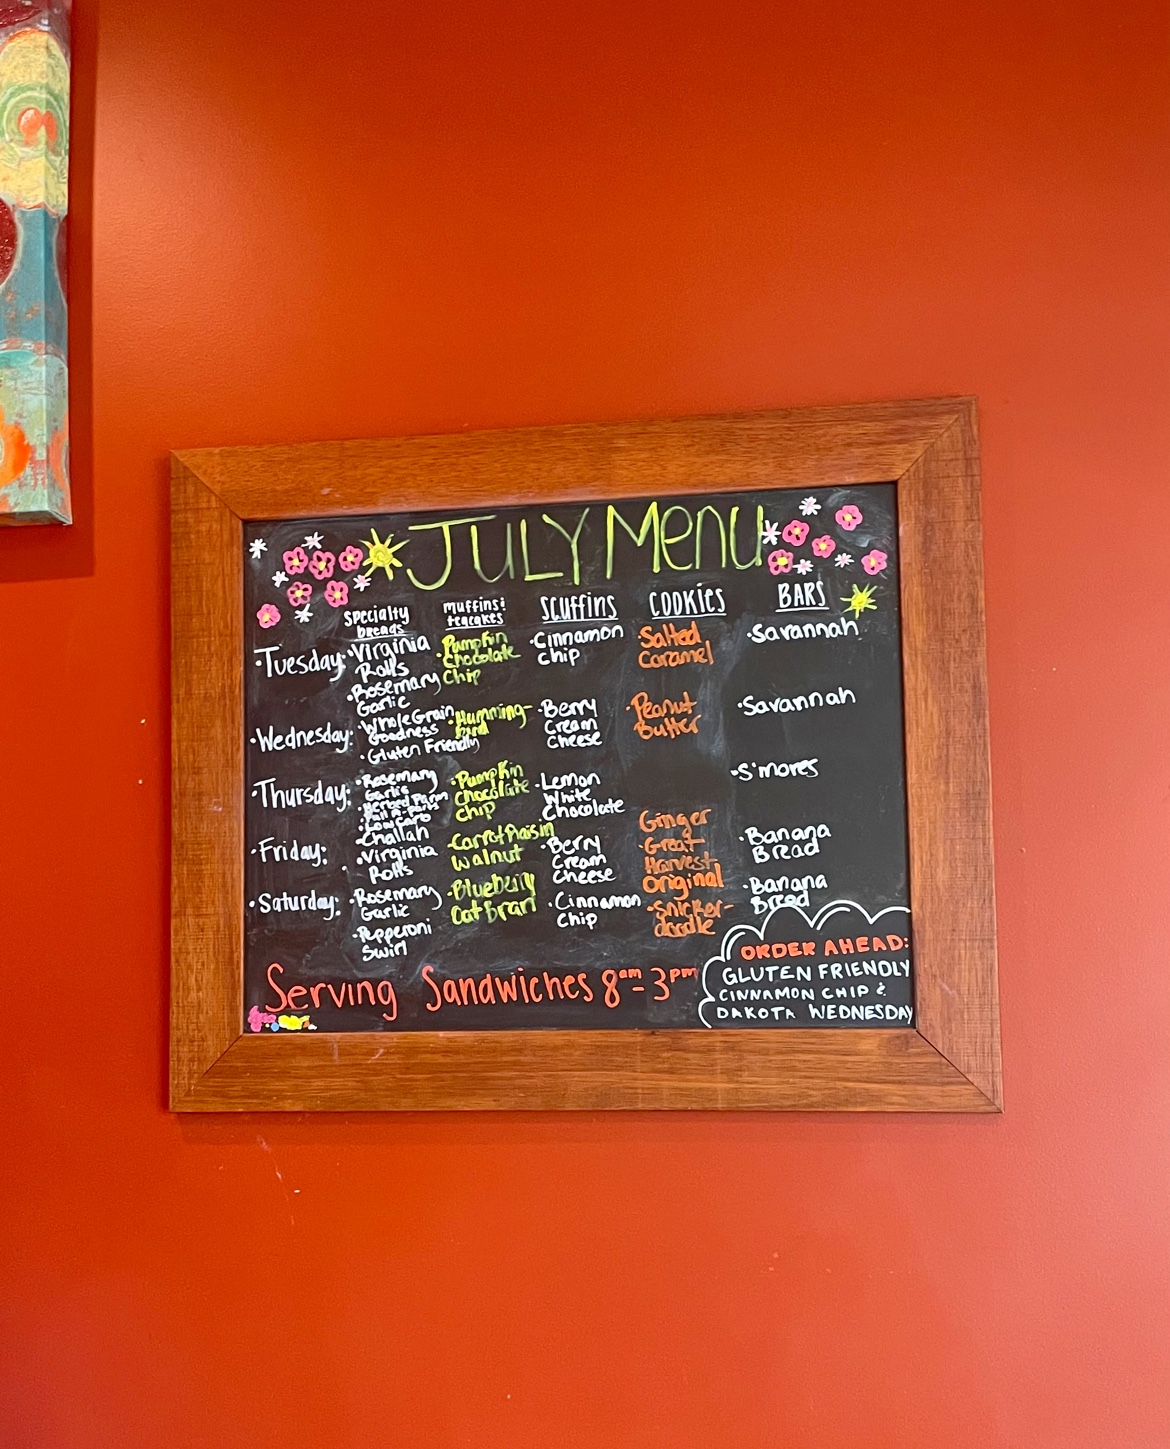 JULY Menu
specialty
breads
muffins &
teacakes
scuffins
COOKIES
BARS
·Tuesday:
·Virginia
Rolls
·Rosemary
Garlic
·Pumpkin
Chocolate
Chip
·Cinnamon
chip
·Salted
Caramel
·Savannah
·Wednesday:
·Whole Grain
Goodness
·Gluten Friendly
·Humming-
bird
·Berry
Cream
cheese
·Peanut
Butter
·Savannah
·Thursday:
·Rosemary
Garlic
·Herbed Parm
Pull-A-Parts
·Low Carb
·Pumpkin
Chocolate
chip
·Lemon
White
Chocolate
Ginger
·S'mores
·Friday:
·Challah
·Virginia
Rolls
·Carrot Raisin
Walnut
·Berry
Cream
Cheese
·Great
Harvest
Original
·Banana
Bread
·Saturday:
·Rosemary
Garlic
·Pepperoni
Swirl
·Blueberry
Oat bran
·Cinnamon
chip
·Snicker-
doodle
·Banana
Bread
Serving Sandwiches 8am - 3pm
ORDER AHEAD:
GLUTEN FRIENDLY
CINNAMON CHIP &
DAKOTA WEDNESDAY